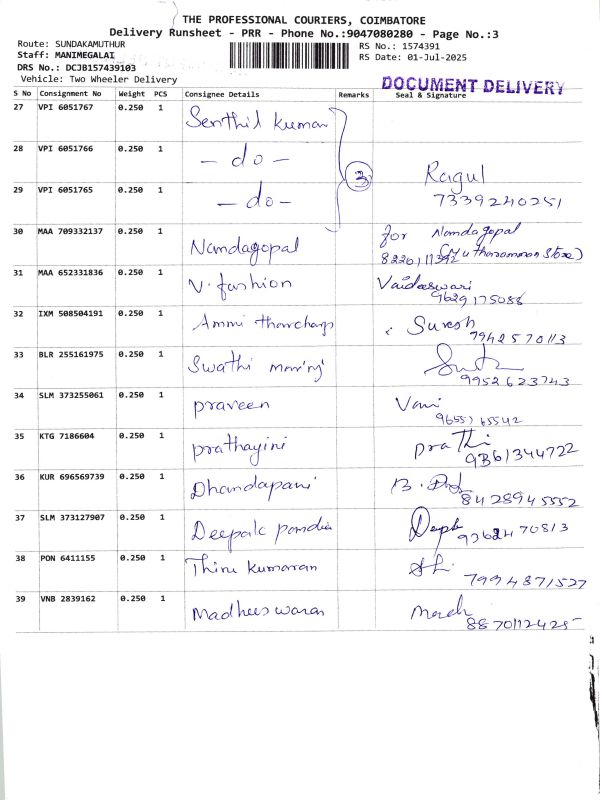 THE PROFESSIONAL COURIERS, COIMBATORE
Delivery Runsheet - PRR - Phone No.:9047080280 - Page No.:3
Route: SUNDAKAMUTHUR
RS No.: 1574391
Staff: MANIMEGALAI
RS Date: 01-Jul-2025
DRS No.: DCJB157439103
Vehicle: Two Wheeler Delivery
DOCUMENT DELIVERY
S No Consignment No Weight PCS Consignee Details Remarks Seal & Signature
27 VPI 6051767 0.250 1 Senthil kumar
28 VPI 6051766 0.250 1 - do -
3
Ragul
29 VPI 6051765 0.250 1 - do - 7339240251
30 MAA 709332137 0.250 1 Nandagopal for Nandagopal
31 MAA 652331836 0.250 1 V. fashion
9629175086
32 IXM 508504191 0.250 1 Ammi Suresh
7942570113
33 BLR 255161975 0.250 1 Swathi
9952623743
34 SLM 373255061 0.250 1 praveen Vani
35 KTG 7186604 0.250 1 prathayini prathi
9361344722
36 KUR 696569739 0.250 1 Dhandapani B.
8428945552
37 SLM 373127907 0.250 1 Deepak pandia Deepk
38 PON 6411155 0.250 1 Thiru kumaran
7994871527
39 VNB 2839162 0.250 1 Madheeswaran